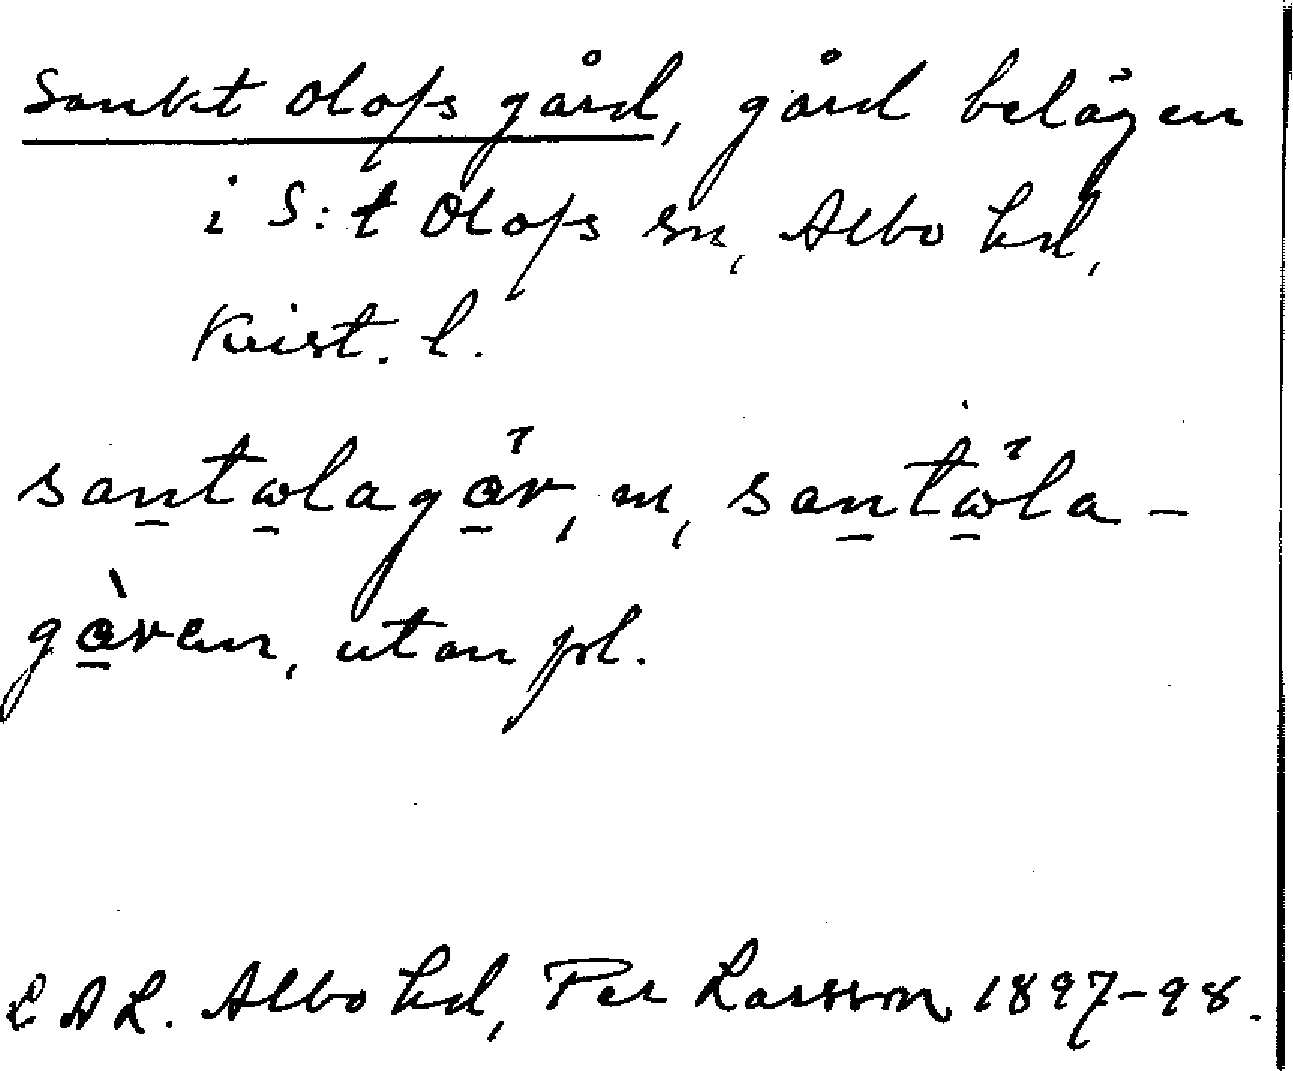 Sankt Olofs gård, gård belägen
i S:t Olofs sn, Albo hd,
Krist. l.
santωlagår, m, santωla-
gåren, utan pl.
LAL. Albo hd, Per Larsson 1897-98.